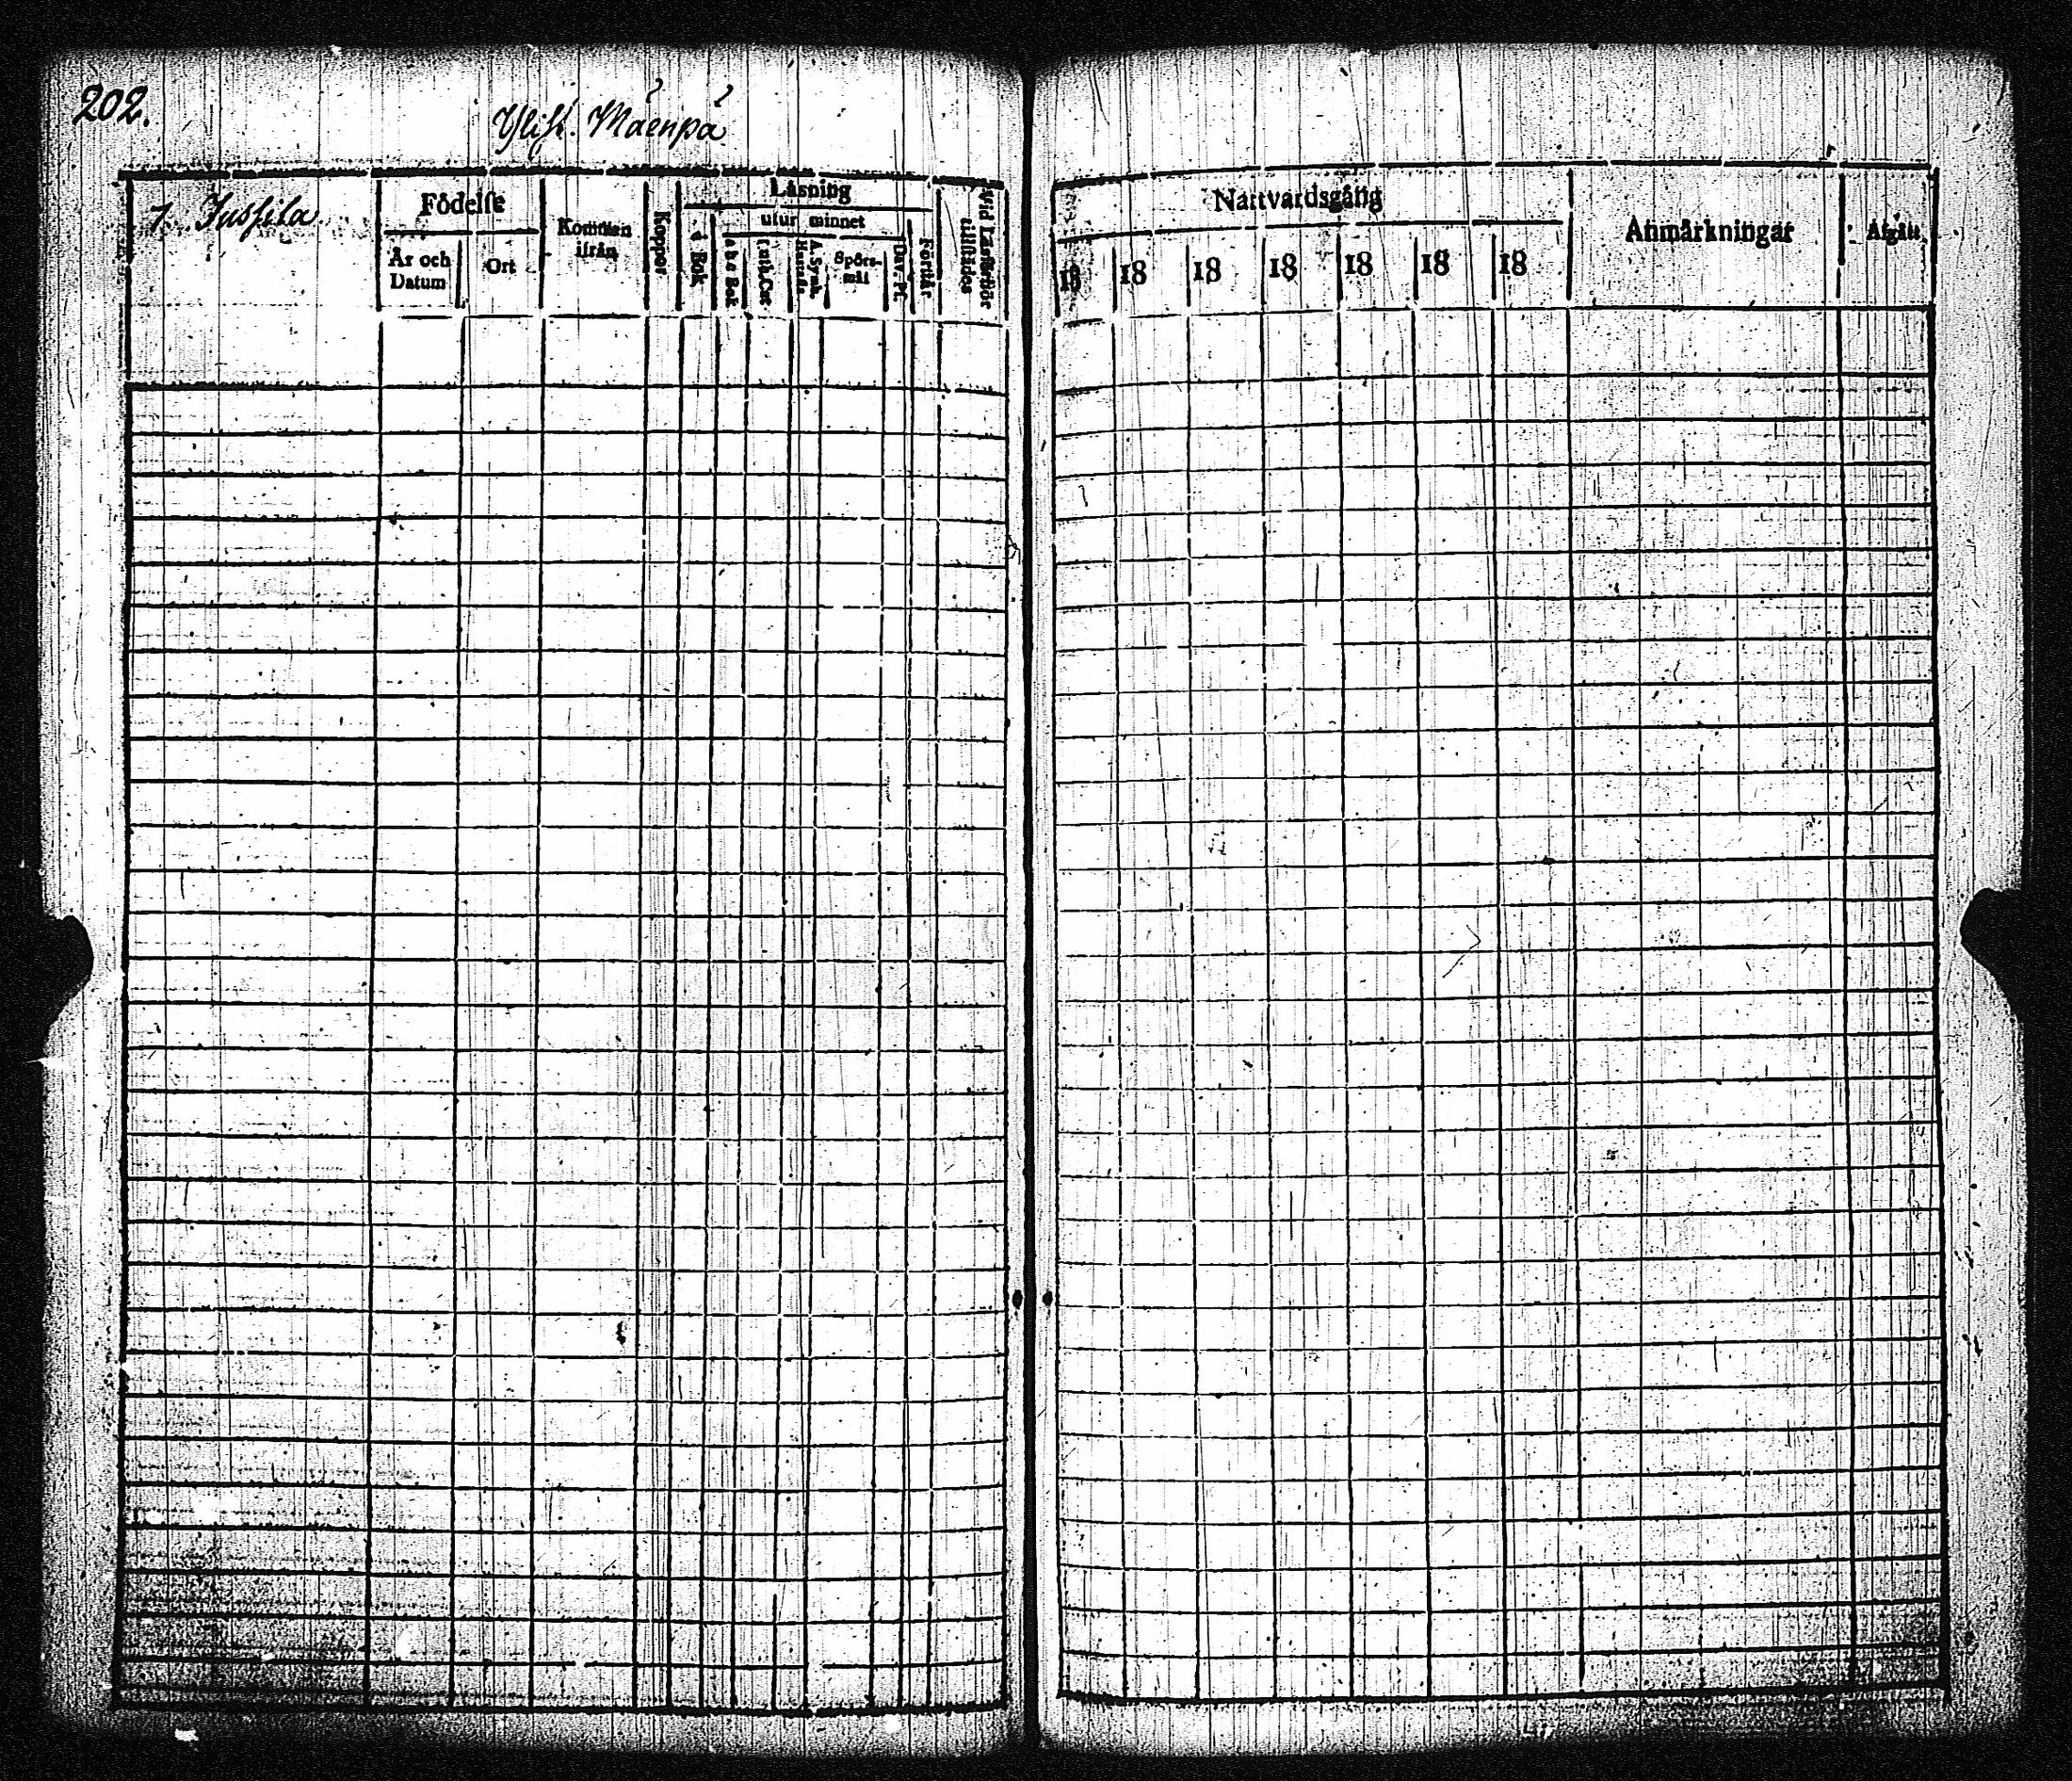 202.
Ylist. Mäenpä
7. Jussila
Födelse
År och Datum
Ort
Kommen ifrån
Koppor
Läsning
utur minnet
i Bok
a b c Bok
Luth. Cat
A. Symb. Hustafl.
Spörs-mål
Dav. Ps.
Förstår
Vid Läsförhör tillstädes
Nattvardsgång
18 18 18 18 18 18 18
Anmärkningar
Afgått